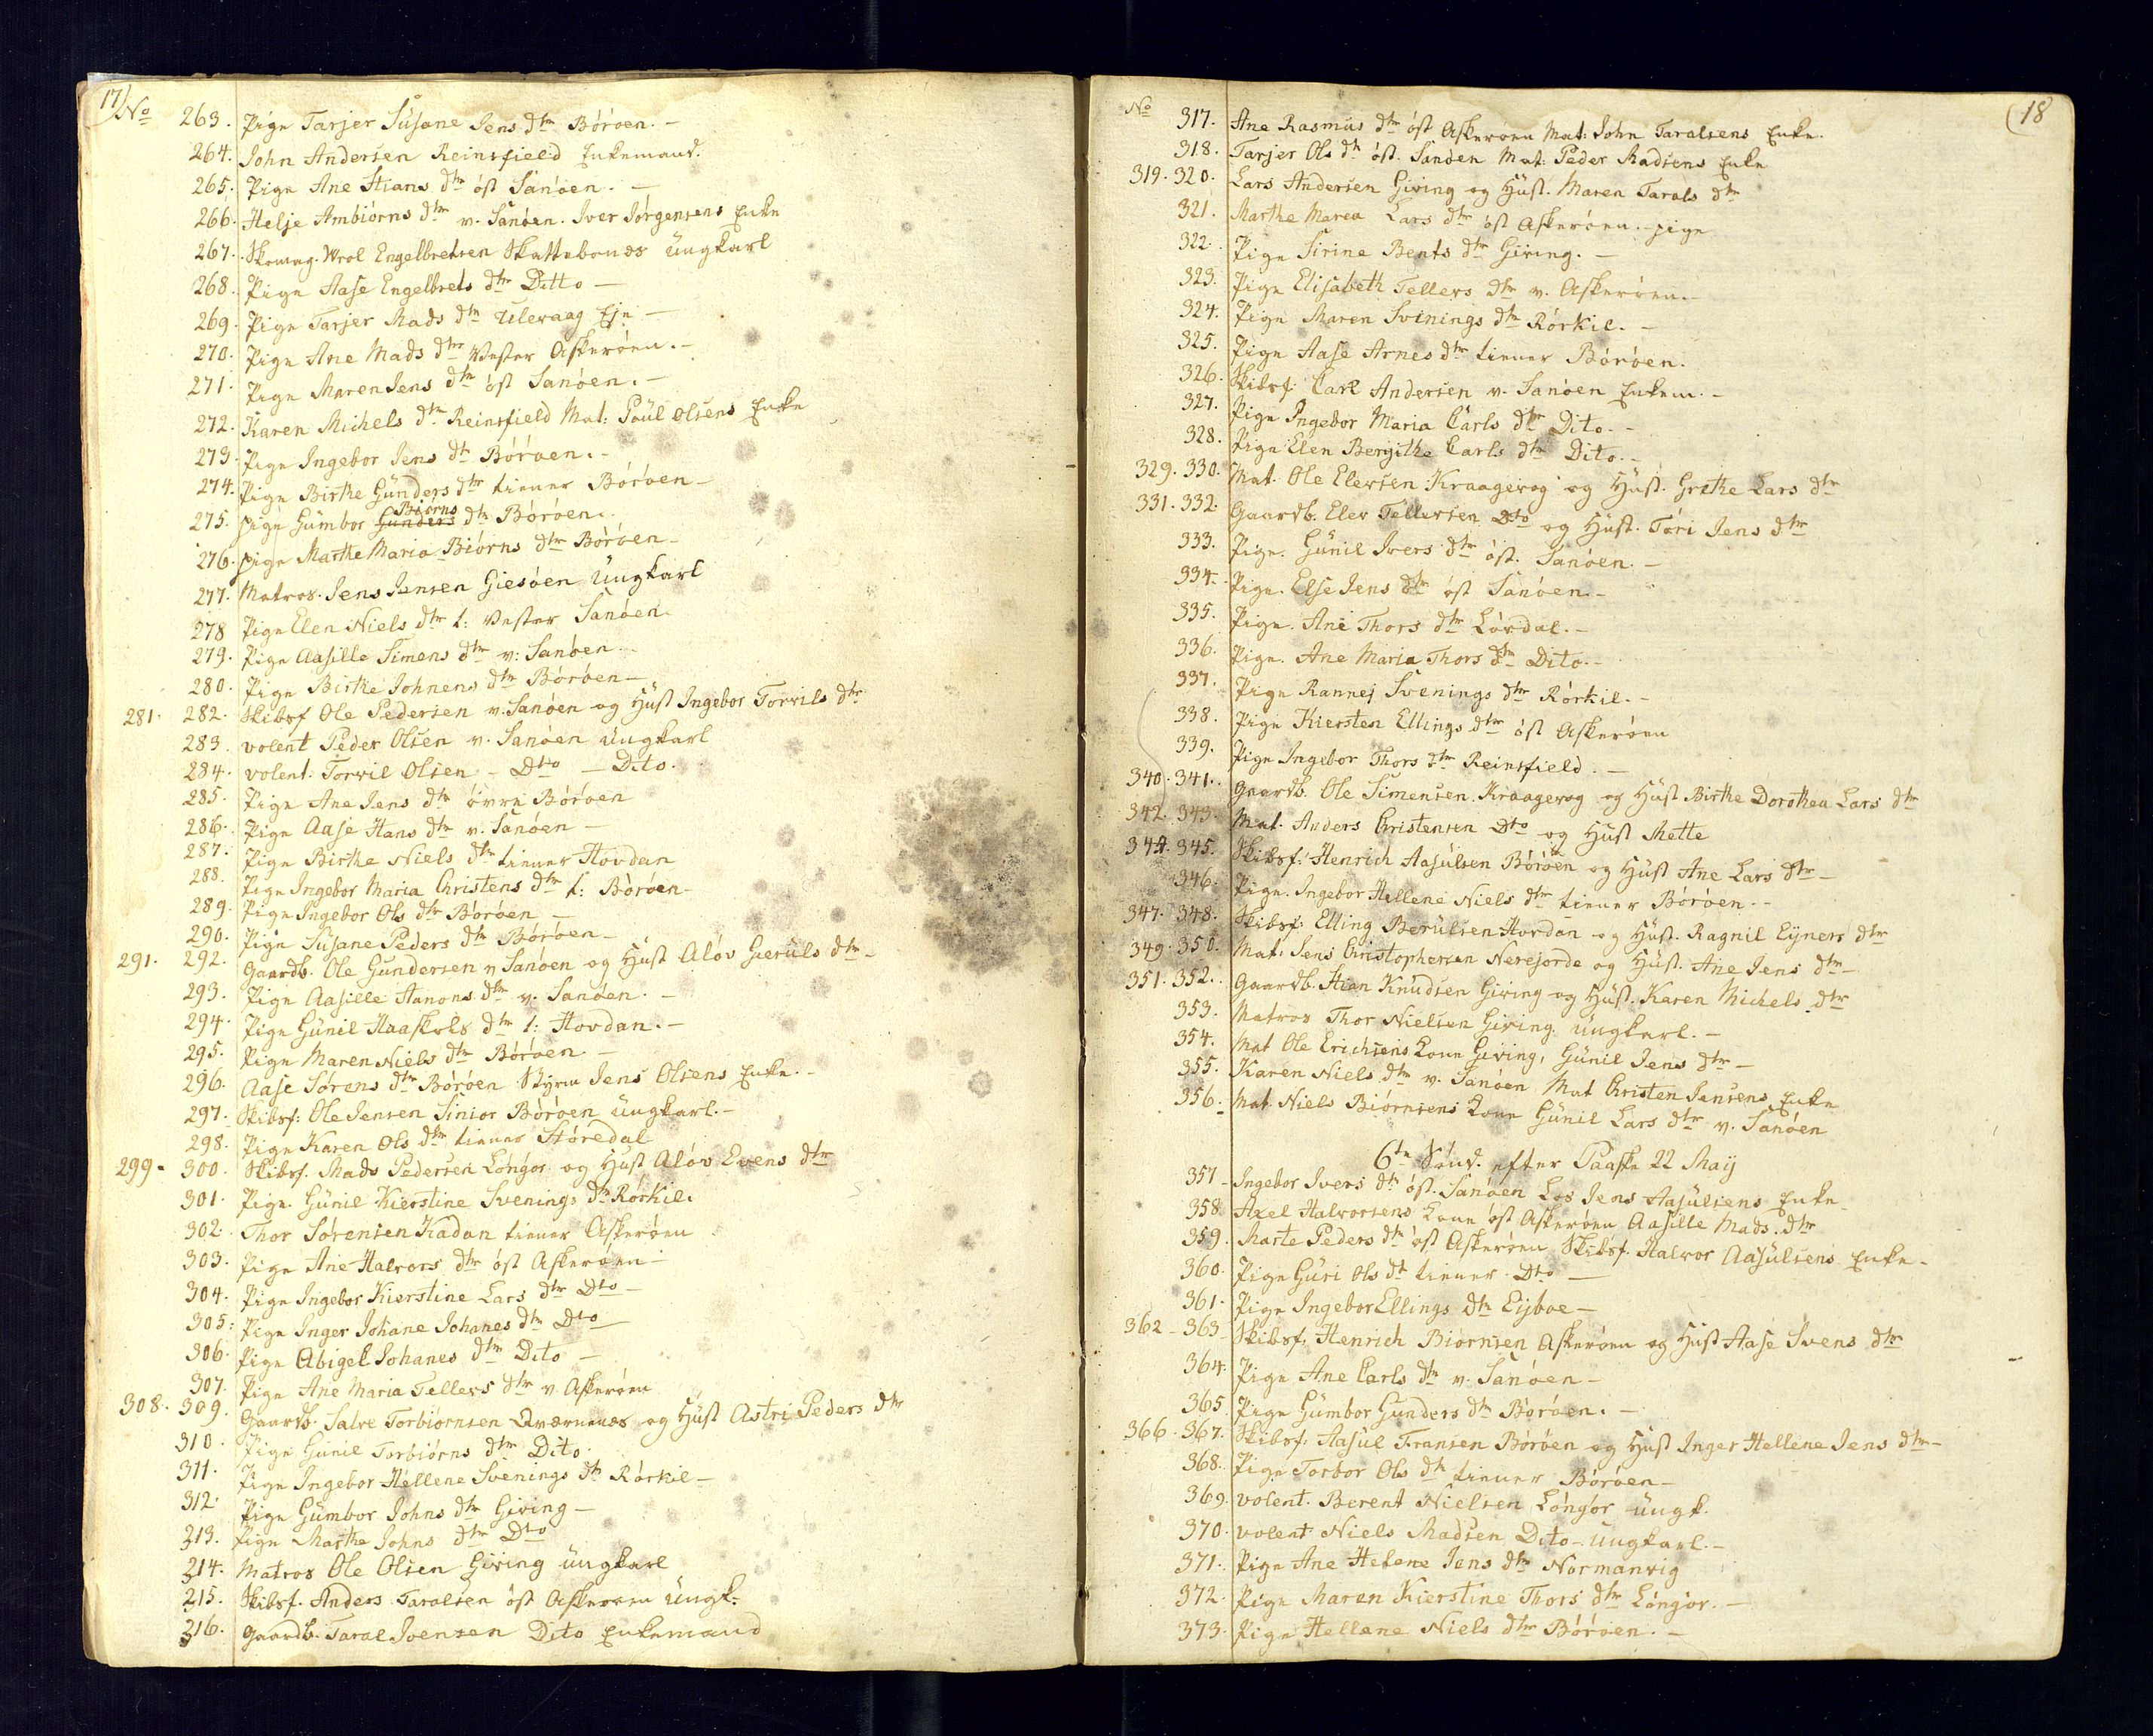 17) No 263. Pige Tarjer Susane Jens dtr Böröen. –
264. John Andersen Reinsfield Enkemand.
265. Pige Ane Stians dtr öst Sanöen. –
266. Helje Ambiörns dtr v. Sanöen. Iver Jörgensens Enke
267. Skomag. Wrol Engelbretsen Skattebonæs üngkarl
268. Pige Aase Engelbrets dtr Ditto –
269. Pige Tarjer Mads dtr Uleraag Eje –
270. Pige Ane Mads dtr Vester Askeröen. –
271. Pige Maren Jens dtr öst Sanöen. –
272. Karen Michels dtr Reinsfield Mat: Poül Olsens Enke
273. Pige Ingebor Jens dtr Böröen. –
274. Pige Birthe Günders dtr tiener Böröen –
Biörns
275. pige Gümbor Gunders dtr Böröen.
276. pige Marthe Maria Biörns dtr Böröen –
277. Matros. Jens Jensen Giesöen üngkarl
278 Pige Elen Niels dtr t: Vester Sanöen.
279. Pige Aasille Simens dtr v: Sanöen –
280. Pige Birthe Johnens dtr Böröen –
281. 282. Skibsf Ole Pedersen v. Sanöen og Hüst Ingebor Torvils dtr
283. volent Peder Olsen v. Sanöen üngkarl
284. volent. Torvil Olsen – Dto – Dito.
285. Pige Ane Jens dtr övre Böröen
286. Pige Aase Hans dtr v. Sanöen –
287. Pige Birthe Niels dtr tiener Hovdan
288. Pige Ingebor Maria Christens dtr t: Böröen –
289. Pige Ingebor Ols dtr Böröen –
290. Pige Susane Peders dtr Böröen –
291. 292. Gaardb. Ole Gundersen v Sanöen og Hüst Alöv Gieruls dtr –
293. Pige Aasille Hanons dtr v. Sanöen. –
294. Pige Günil Haaskols dtr t: Hovdan. –
295. Pige Maren Niels dtr Böröen. –
296. Aase Sörens dtr Böröen Styrm Jens Olsens Enke. –
297. Skibsf: Ole Jensen Sinior Böröen üngkarl. –
298. Pige Karen Ols dtr tiener Störedal
299 – 300. Skibsf. Mads Pedersen Löngör og Hüst Alöv Evens dtr
301. Pige. Günil Kierstine Svenings dtr Rörkil.
302. Thor Sörensen Kadan tiener Askeröen
303. Pige Ane Halvors dtr öst Askeröen –
304. Pige Ingebor Kierstine Lars dtr Dto –
305: Pige Inger Johane Johanes dtr Dto
306. Pige Abigel Johanes dtr Dito –
307. Pige Ane Maria Tellers dtr v. Askeröen
308. 309. Gaardb. Salve Torbiörnsen Qværnenæs og Hüst Astri Peders dtr
310. Pige Günil Torbiörns dtr Dito.
311. Pige Ingebor Hellene Svenings dtr Rörkil –
312. Pige Gümbor Johns dtr Giving –
313. Pige Marthe Johns dtr Dto
314. Matros Ole Olsen Giving üngkarl
315. Skibsf. Anders Taralsen öst Askeröen üngk:
316. Gaardb. Taral Joensen Dito Enkemand
No (18
317. Ane Rasmus dtr öst Askeröen Mat: John Taralsens Enke.
318. Tarjer Ols dtr öst. Sanöen Mat: Peder Madsens Enke
319. 320. Lars Andersen Giving og Hüst. Maren Tarals dtr
321. Marthe Marea Lars dtr öst Askeröen. – pige
322. Pige Sirine Bents dtr Giving. –
323. Pige Elisabeth Tellers dtr v. Askeröen. –
324. Pige Maren Svinings dtr Rörkil. –
325. Pige Aase Arnes dtr tiener Böröen.
326. Skibsf: Carl Andersen v. Sanöen Enkem. –
327. Pige Ingebor Maria Carls dtr Dito. –
328. Pige Elen Bergithe Carls dtr Dito. –
329. 330. Mat. Ole Elersen Kraagevog og Hüst. Grethe Lars dtr
331. 332. Gaardb. Elev Tellersen Dto og Hüst. Töri Jens dtr
333. Pige. Günil Ivers dtr öst. Sanöen. –
334. Pige. Else Jens dtr öst Sanöen. –
335. Pige. Ane Thors dtr Lövdal. –
336. Pige. Ane Maria Thors dtr Dito. –
337. Pige Rannej Svenings dtr Rörkil. –
338. Pige Kiersten Ellings dtr öst Askeröen
339. Pige Ingebor Thors dtr Reinsfield. –
340. 341. Gaardb. Ole Simensen Kraagevog og Hüst Birthe Dorothea Lars dtr
342. 343. Mat. Anders Christensen Dto og Hüst Mette
344. 345. Skibsf: Henrich Aasülsen Böröen og Hüst Ane Lars dtr –
346. Pige. Ingebor Hellene Niels dtr tiener Böröen. –
347. 348. Skibsf: Elling Berülsen Hovdan og Hüst. Ragnil Ejners dtr
349. 350. Mat: Jens Christophersen Nerejorde og Hüst. Ane Jens dtr –
351. 352. Gaardb. Stian Knüdsen Giving og Hüst. Karen Michels dtr
353. Matros Thor Nielsen Giving üngkarl. –
354. Mat Ole Erichsens Kone Giving, Günil Jens dtr –
355. Karen Niels dtr v. Sanöen Mat Christen Jensens Enke
356. Mat. Niels Biörnsens Kone Günil Lars dtr v. Sanöen
6te Sönd. efter Paaske 22 Maij
357 – Ingebor Ivers dtr öst. Sanöen Los Jens Aasülsens Enke
358 Axel Halvorsens Kone öst Askeröen Aasille Mads. dtr
359. Marte Peders dtr öst Askeröen Skibsf. Halvor Aasülsens Enke –
360. Pige Güri Ols dt tiener. Dto –
361. Pige Ingebor Ellings dtr Eijboe –
362 – 363 – Skibsf. Henrich Biörnsen Askeröen og Hüst Aase Svens dtr
364. Pige Ane Carls dtr v. Sanöen –
365. Pige Gümbor Gunders dtr Böröen. –
366. 367. Skibsf: Aasül Fransen Böröen og Hüst Inger Hellene Jens dtr –
368. Pige Torbor Ols dtr tiener Böröen –
369. volent. Berent Nielsen Löngör üngk.
370. volent Niels Madsen Dito – Üngkarl. –
371. Pige Ane Helene Jens dtr Normanvig
372. Pige Maren Kierstine Thors dtr Löngör. –
373. Pige Hellene Niels dtr Böröen. –